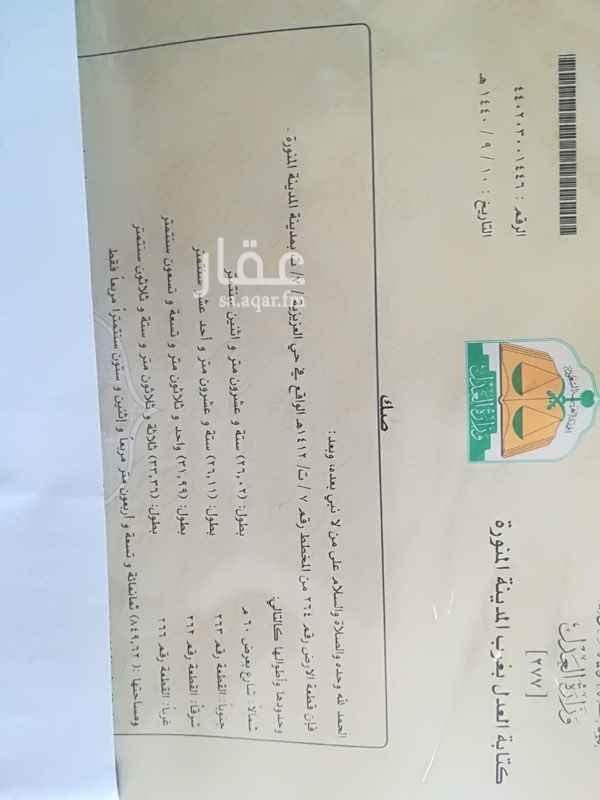 وزارة العدل
[٢٧٧]
كتابة العدل بغرب المدينة المنورة
وزارة العدل
الرقم : ٤٤٠٢٠٣٠٠١٤٤٦
التاريخ : ١٠ / ٩ / ١٤٤٠ هـ
صك
الحمد لله وحده والصلاة والسلام على من لا نبي بعده، وبعد:
فإن قطعة الارض رقم ٢٦٤ من المخطط رقم ٧ / ت / ١٤١٢هـ الواقع في حي العزيزية بمدينة المدينة المنورة .
وحدودها وأطوالها كالتالي:
شمالا: شارع بعرض ٦٠ م بطول: (٢٦,٠٢) ستة و عشرون متر و اثنين سنتمتر
جنوباً: القطعة رقم ٢٦٣ بطول: (٢٦,١١) ستة و عشرون متر و أحد عشر سنتمتر
شرقاً: القطعة رقم ٢٦٢ بطول: (٣١,٩٩) واحد و ثلاثون متر و تسعة و تسعون سنتمتر
غرباً: القطعة رقم ٢٦٦ بطول: (٣٣,٣٦) ثلاثة و ثلاثون متر و ستة و ثلاثون سنتمتر
ومساحتها: (٨٤٩,٦٢) ثمانمائة و تسعة و أربعون متر مربعاً و إثنين و ستون سنتمتراً مربعاً فقط
عقار
sa.aqar.fm